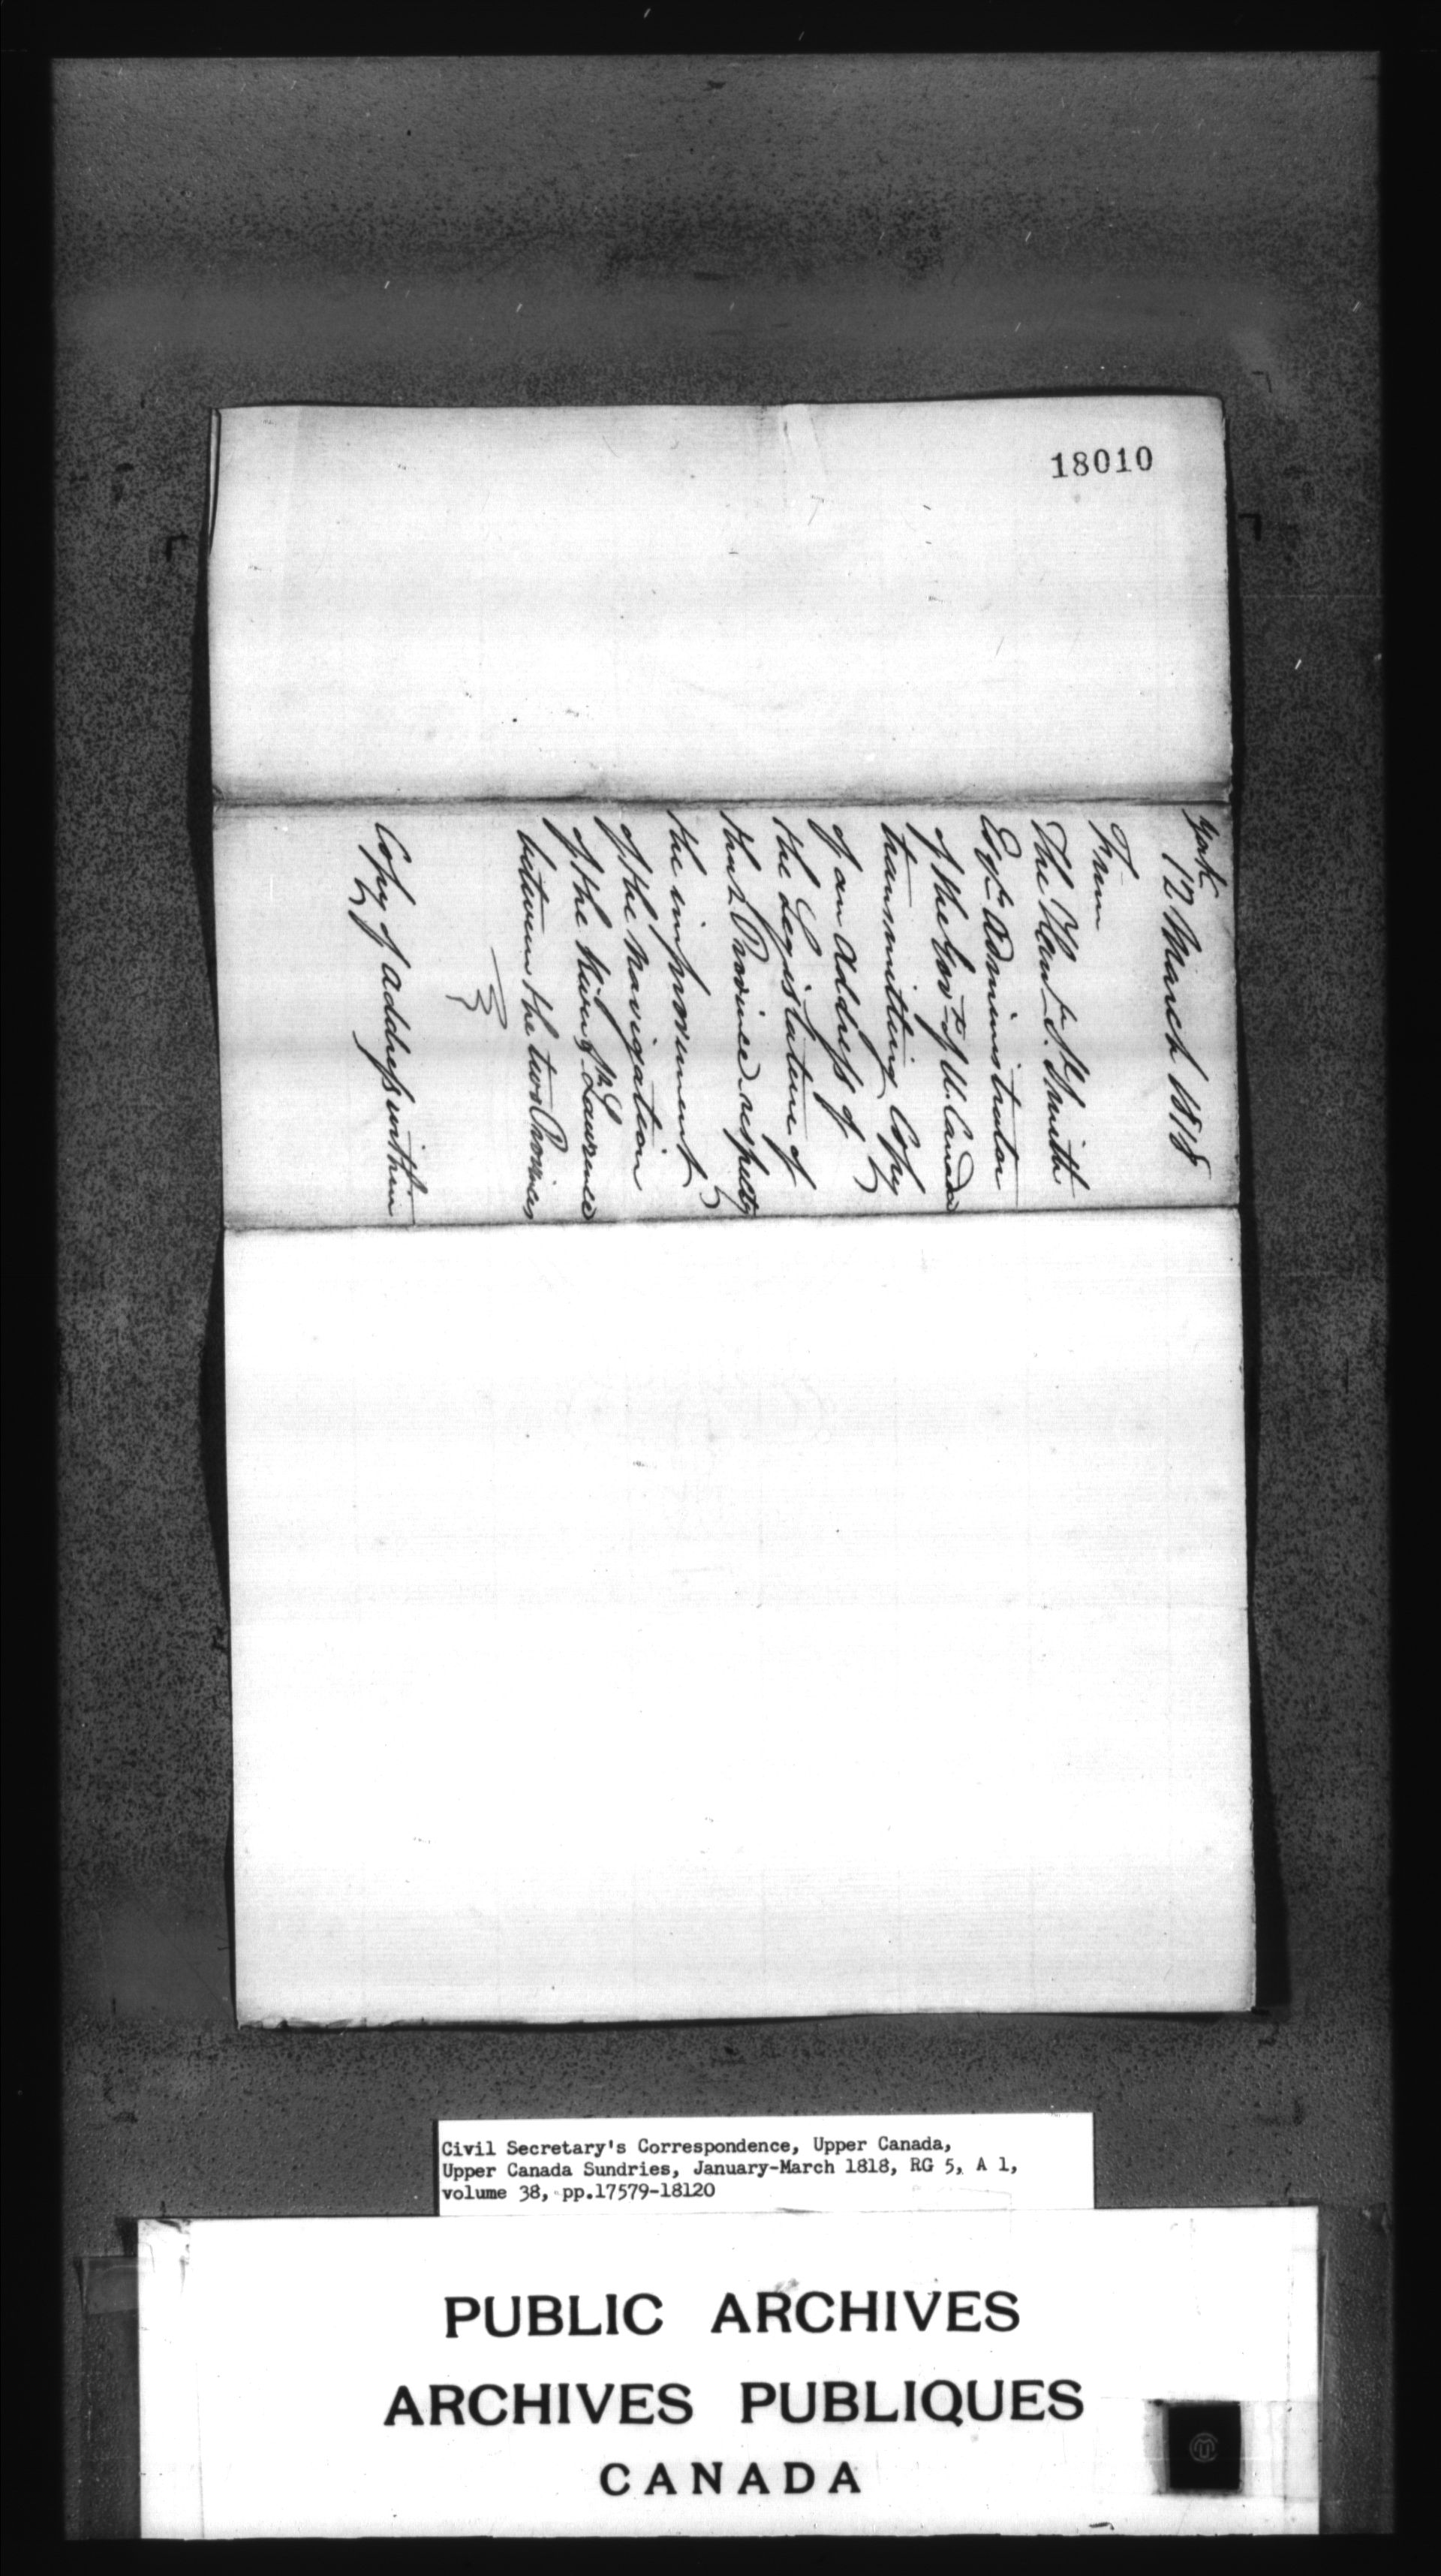 18010
York
12 March 1818
From
The Hon.ble S. Smith
Esqr Administrator
of the Govt of U. Canada
transmitting Copy
of an Address of
the Legislature of
that Province respectg
the improvement
of the Navigation
of the River St. Lawrence
between the two Provinces
Copy of address within
Civil Secretary's Correspondence, Upper Canada,
Upper Canada Sundries, January-March 1818, RG 5, A 1,
volume 38, pp.17579-18120
PUBLIC ARCHIVES
ARCHIVES PUBLIQUES
CANADA